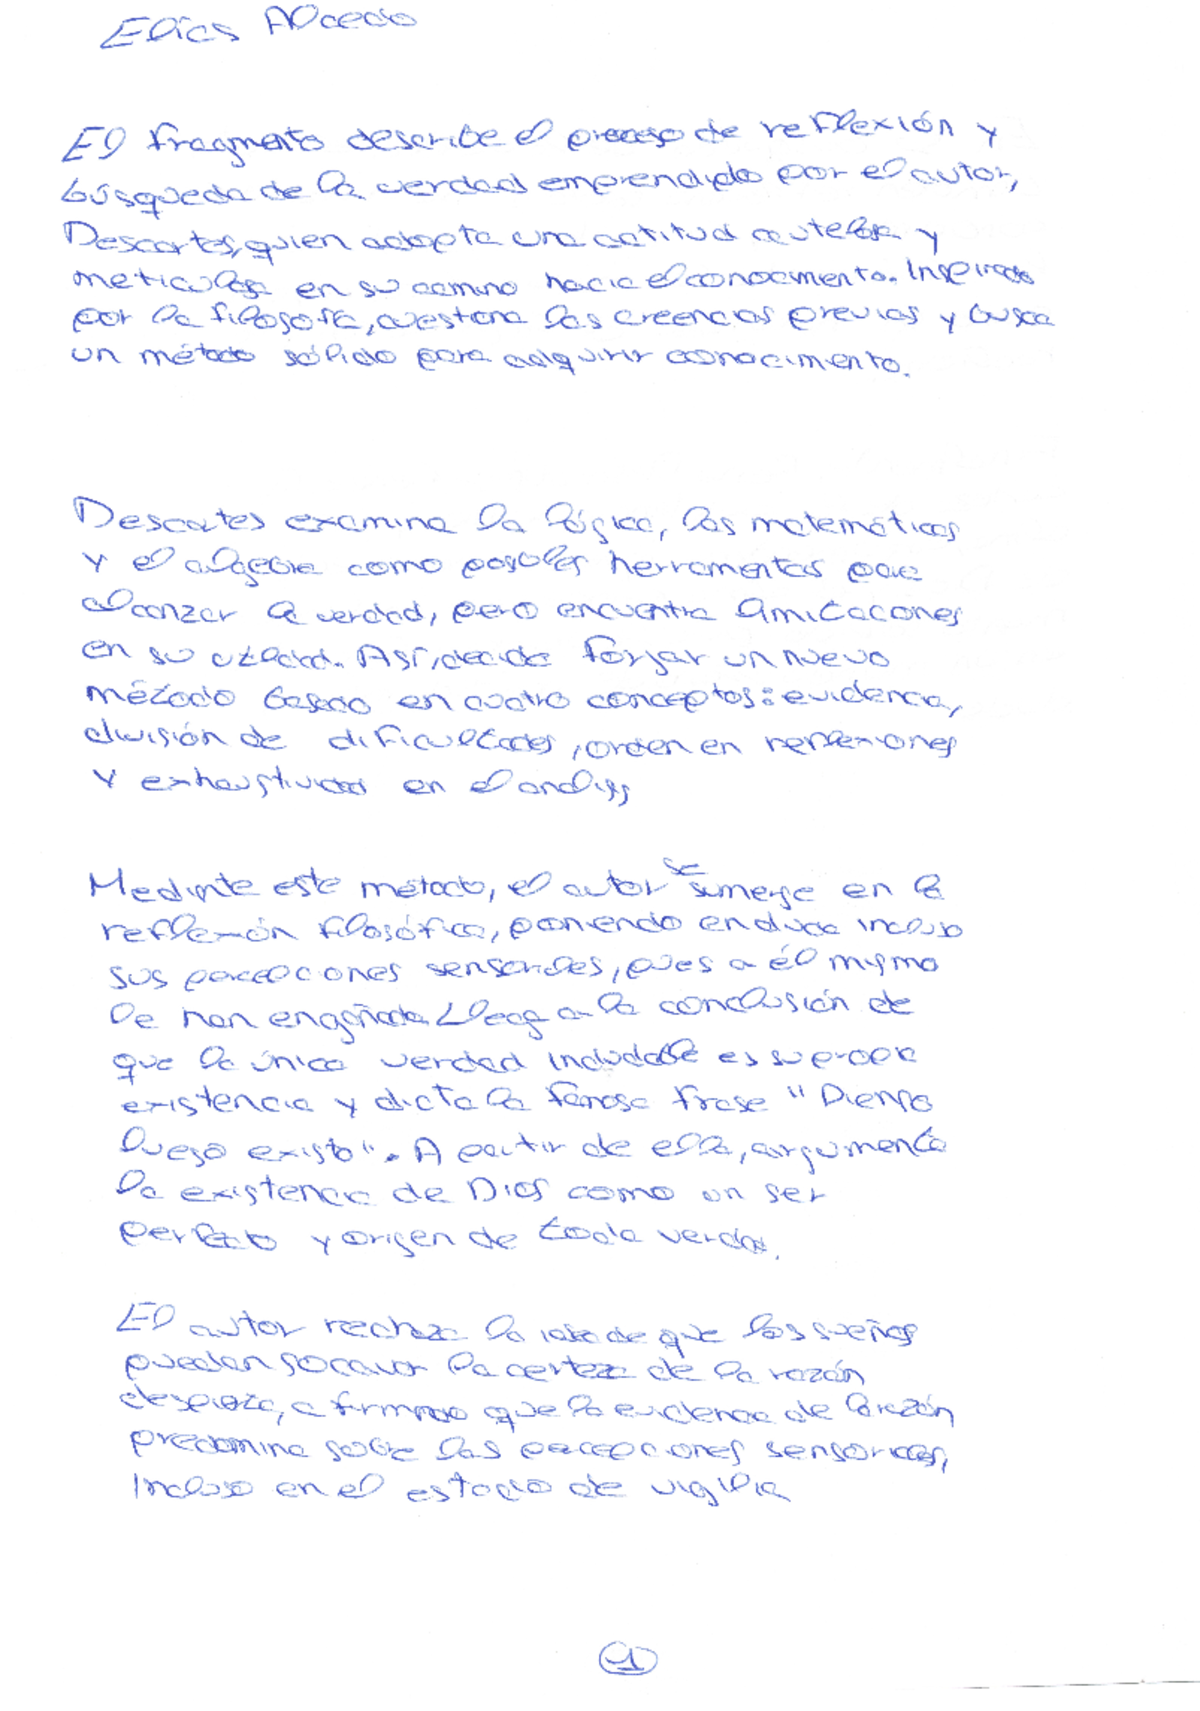 Elías Alcedo
El fragmento describe el proceso de reflexión y
búsqueda de la verdad emprendido por el autor,
Descartes, quien adopta una actitud cautelosa y
meticulosa en su camino hacia el conocimento. Inspirado
por la filosofía, cuestiona las creencias previas y busca
un método sólido para adquirir conocimiento.
Descartes examina la lógica, las matemáticas
y el algebra como posibles herramientas para
alcanzar la verdad, pero encuentra limitaciones
en su utilidad. Así, decide forjar un nuevo
método basado en cuatro conceptos: evidencia,
división de dificultades, orden en reflexiones
y exhaustividad en el analisis
Mediante este método, el autor se sumerge en la
reflexión filosófica, poniendo en duda incluso
sus percepciones sensoriales, pues a él mismo
le han engañado. Llega a la conclusión de
que la única verdad indudable es su propia
existencia y dicta la famosa frase "Pienso
luego existo". A partir de ella, argumenta
la existencia de Dios como un ser
perfecto y origen de toda verdad.
El autor rechaza la idea de que los sueños
puedan socavar la certeza de la razón
despierta, afirmando que la evidencia de la razón
predomina sobre las percepciones sensoriales,
incluso en el estado de vigilia
1